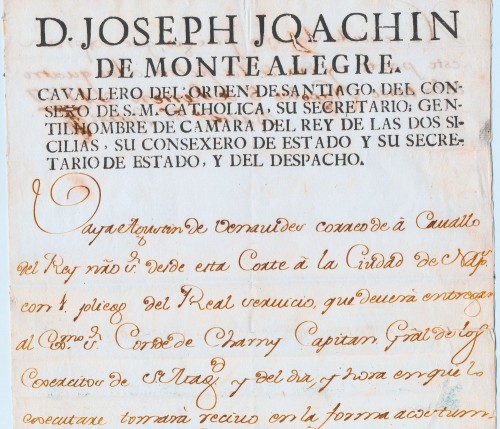 D. JOSEPH JOACHIN
DE MONTEALEGRE.
CAVALLERO DEL ORDEN DE SANTIAGO, DEL CON-
SEXO DE S. M. CATHOLICA, SU SECRETARIO; GEN-
TILHOMBRE DE CAMARA DEL REY DE LAS DOS SI-
CILIAS, SU CONSEXERO DE ESTADO Y SU SECRE-
TARIO DE ESTADO, Y DEL DESPACHO.
Vaya Agustin de Venauides correo de à Cauallo
del Rey nr̃o s.r desde esta Corte à la Ciudad de Nap.s
con 1. pliego del Real seruicio, que deuerà entregar
al Ex.mo s.r Conde de Charny Capitan Gràl de los
Exercitos de S. Mag.d y del dia, y hora en que lo
executare tomarà reciuo en la forma acostum